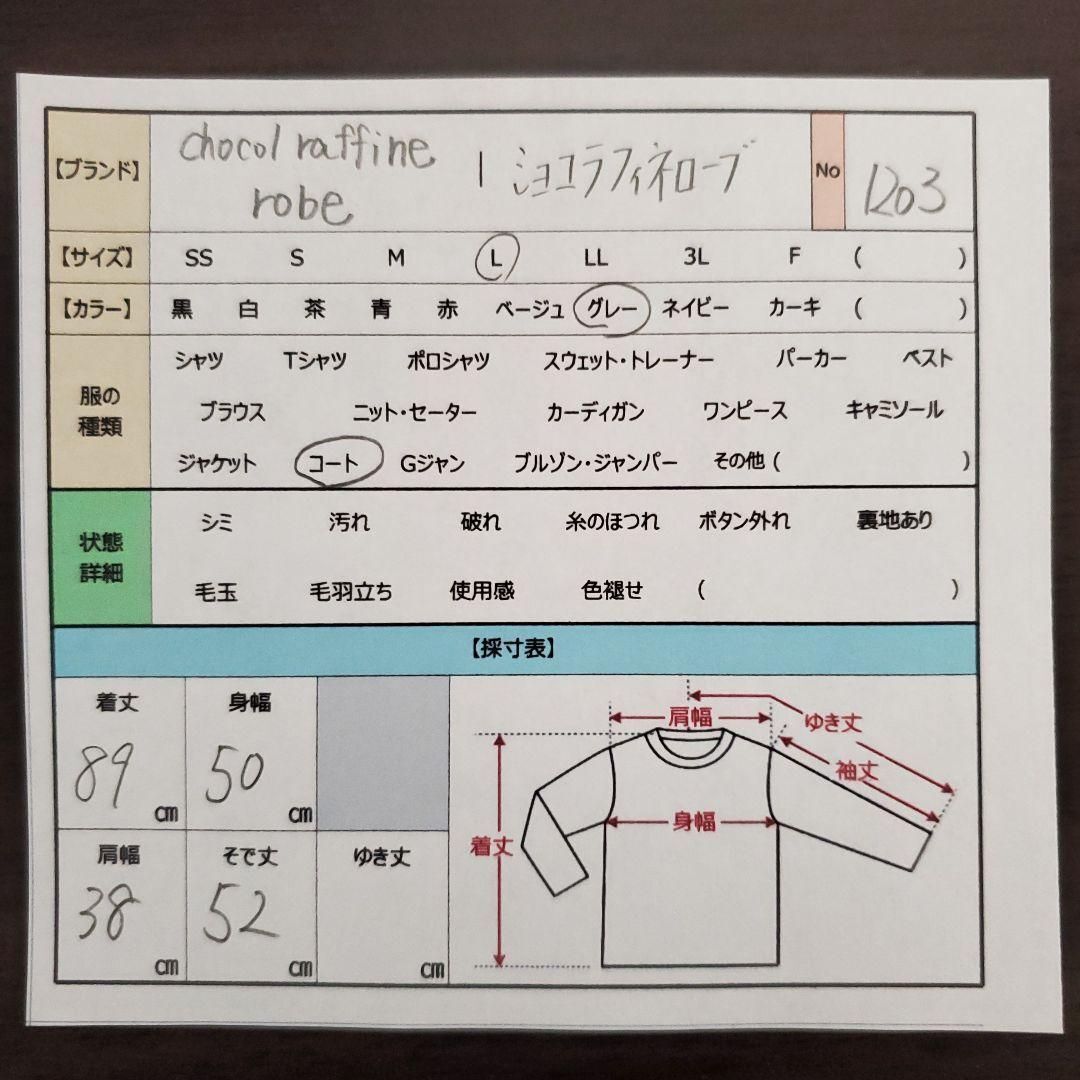 【ブランド】 chocol raffine robe | ショコラフィネローブ No 1203
【サイズ】 SS S M L LL 3L F ( )
【カラー】 黒 白 茶 青 赤 ベージュ グレー ネイビー カーキ ( )
服の種類
シャツ Tシャツ ポロシャツ スウェット・トレーナー パーカー ベスト
ブラウス ニット・セーター カーディガン ワンピース キャミソール
ジャケット コート Gジャン ブルゾン・ジャンパー その他 ( )
状態詳細
シミ 汚れ 破れ 糸のほつれ ボタン外れ 裏地あり
毛玉 毛羽立ち 使用感 色褪せ ( )
【採寸表】
着丈 身幅
89 cm 50 cm
肩幅 そで丈 ゆき丈
38 cm 52 cm cm
肩幅 ゆき丈
袖丈
着丈 身幅